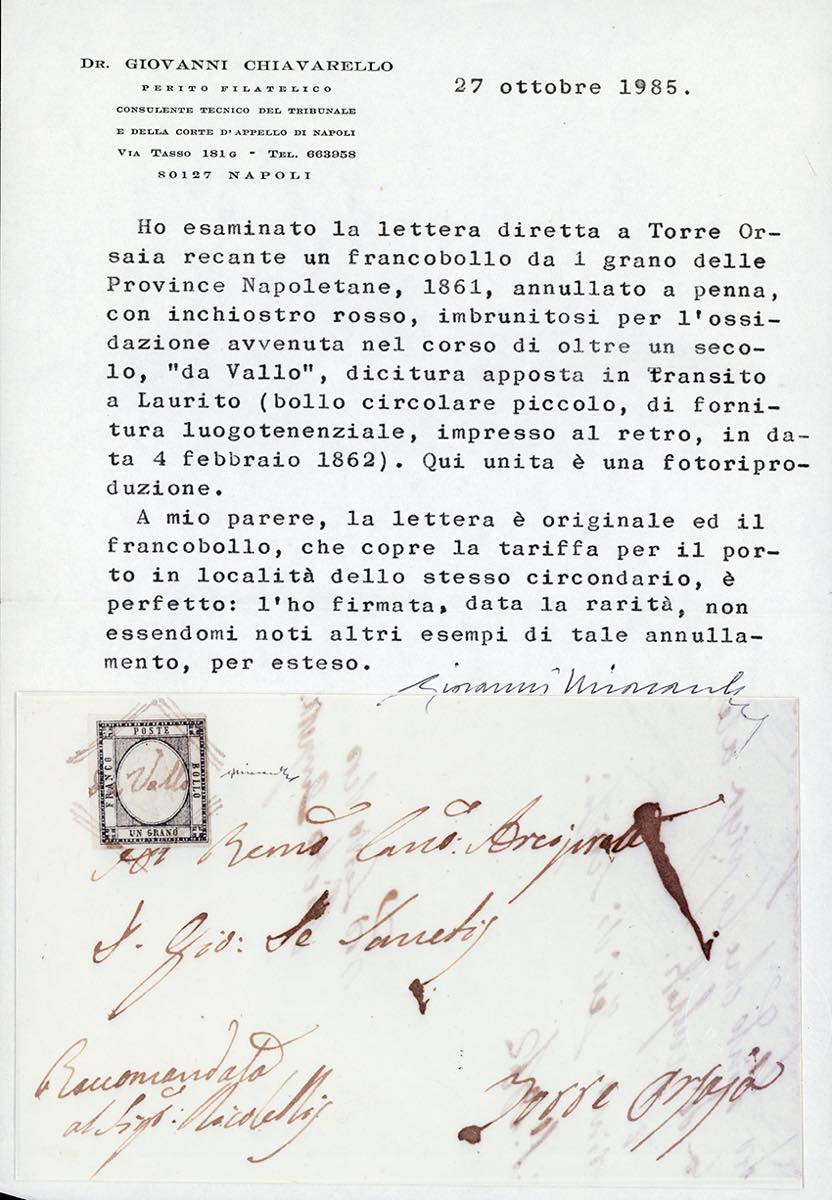 DR. GIOVANNI CHIAVARELLO
PERITO FILATELICO
CONSULENTE TECNICO DEL TRIBUNALE
E DELLA CORTE D'APPELLO DI NAPOLI
VIA TASSO 181G - TEL. 663958
80127 NAPOLI
27 ottobre 1985.
Ho esaminato la lettera diretta a Torre Or-
saia recante un francobollo da 1 grano delle
Province Napoletane, 1861, annullato a penna,
con inchiostro rosso, imbrunitosi per l'ossi-
dazione avvenuta nel corso di oltre un seco-
lo, "da Vallo", dicitura apposta in transito
a Laurito (bollo circolare piccolo, di forni-
tura luogotenenziale, impresso al retro, in da-
ta 4 febbraio 1862). Qui unita è una fotoripro-
duzione.
A mio parere, la lettera è originale ed il
francobollo, che copre la tariffa per il por-
to in località dello stesso circondario, è
perfetto: l'ho firmata, data la rarità, non
essendomi noti altri esempi di tale annulla-
mento, per esteso.
Giovanni
POSTE
FRANCO
BOLLO
da Vallo
UN GRANO
Al Remo Canco:
D. Gio: De
Raccomandata
al Sigr.
Torre Orsaja